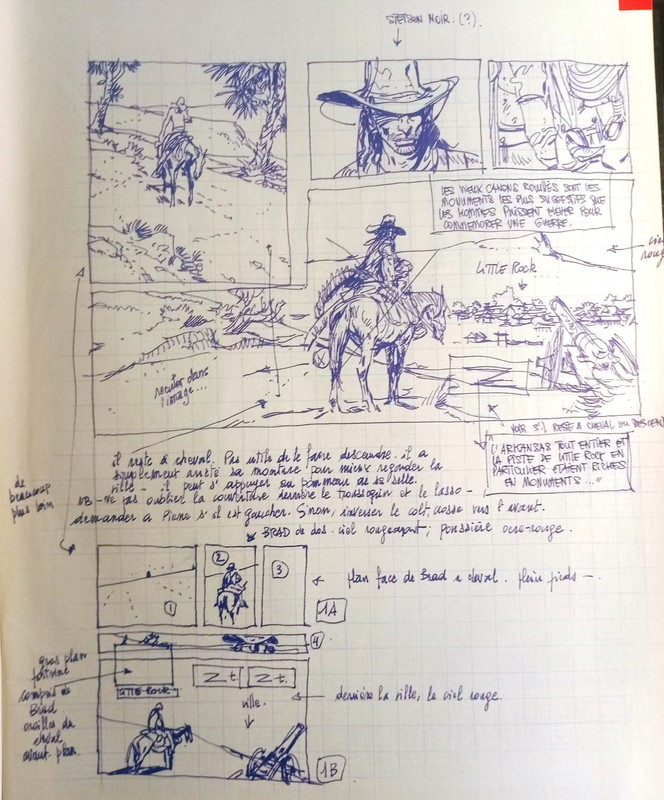 STETSON NOIR. (?).
LES VIEUX CANONS ROUILLÉS SONT LES
MONUMENTS LES PLUS SUGGESTIFS QUE
LES HOMMES PUISSENT ÉLEVER POUR
COMMÉMORER UNE GUERRE.
ciel
rouge
LITTLE ROCK
reculer dans
l'image...
VOIR S'IL RESTE À CHEVAL OU DESCEND
"L'ARKANSAS TOUT ENTIER ET
LA PISTE DE LITTLE ROCK EN
PARTICULIER ÉTAIENT RICHES
EN MONUMENTS..."
de
beaucoup
plus loin
il reste à cheval. Pas utile de le faire descendre. il a
simplement arrêté sa monture pour mieux regarder la
ville. il peut s'appuyer au pommeau de sa selle.
NB - ne pas oublier la couverture derrière le troussequin et le lasso -
demander à Pierre s'il est gaucher. Sinon, inverser le colt, crosse vers l'avant.
BRAD de dos. ciel rougeoyant; poussière ocre-rouge.
1
2
3
plan face de Brad à cheval. plein pieds -.
1A
4
gros plan
compris de
Brad
oreilles du
cheval
avant plan.
LITTLE ROCK
Z t.
Z t.
ville.
derrière la ville, le ciel rouge.
1B